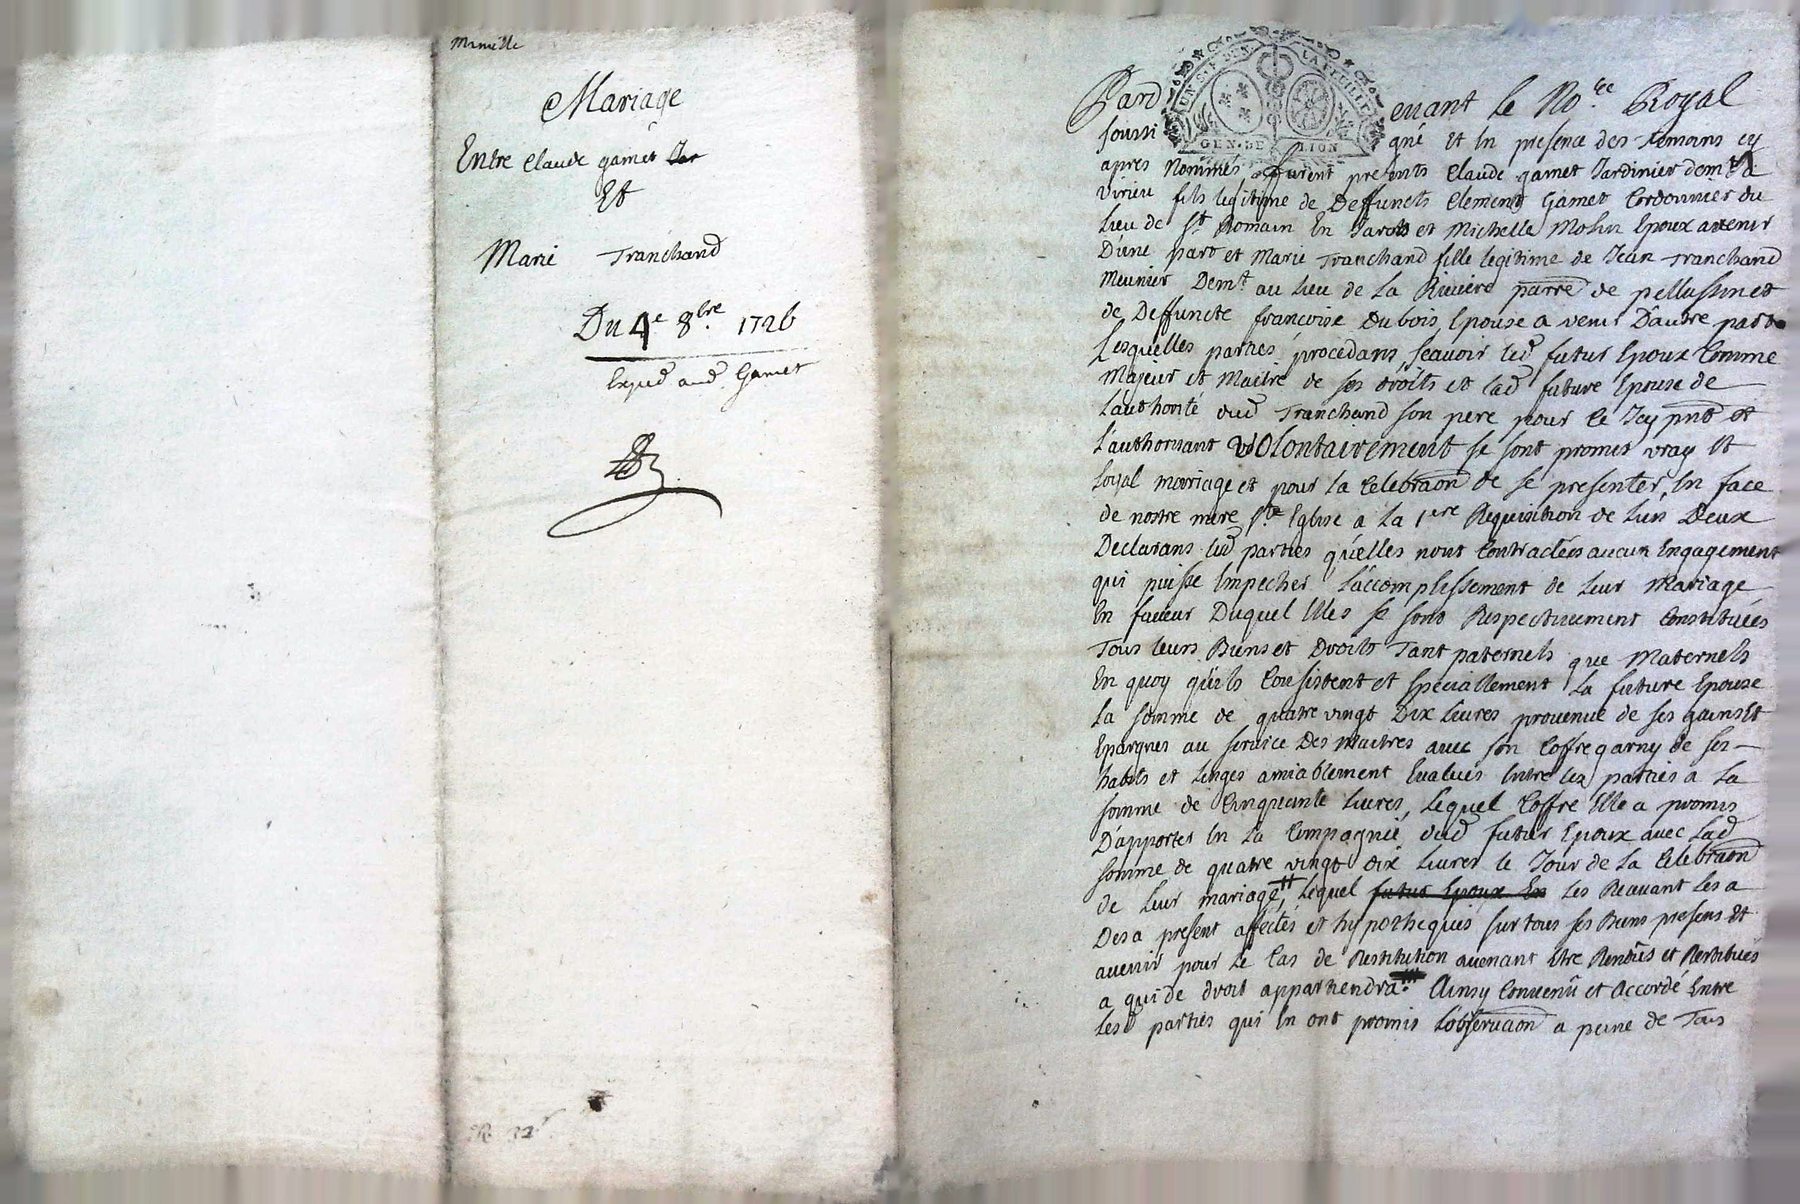 Minutte
Mariage
Entre Claude gamet
Et
Marie Tranchand
Du 4e 8bre 1726
Exped aud Gamet
UN S. 4. DEN. LA FEUILLE
GEN. DE LION
Pard evant le No.re Royal
soussi gné et En presence des temoins cy
apres Nommés furent presents Claude gamet Jardinier demt a
virieu fils legitime de Deffuncts Clement Gamet Cordonnier du
Lieu de St. Romain En Jarets et Michelle Molin Epoux avenir
Dune part et Marie Tranchand fille legitime de Jean Tranchand
Meunier Demt. au Lieu de La Riviere parre de pellussin et
de Deffuncte francoise Dubois Epouse a venir D'autre part
Lesquelles parties procedans sçavoir led futur Epoux Comme
Majeur et Maitre de ses droits et lad future Epouse de
L'authorité dud Tranchand son pere pour ce Icy pnt et
L'authorisant volontairement se sont promis vray et
loyal mariage et pour la Celebraon de se presenter En face
de nostre mere Ste Eglise a La 1ere Requisition de Lun Deux
Declarans led parties qu'elles nont Contractées aucun Engagement
qui puisse Empecher L'accomplissement de Leur Mariage
En faveur Duquel Elles se sont Respectivement Constituées
Tous leurs Biens et Droits Tant paternels que Maternels
En quoy quils Consistent et speciallement La future Epouse
La somme de quatre vingt Dix Livres provenue de ses gains Et
Epargnes au service Des Maitres avec son Coffre garny de ses
habits et Linges amiablement Evalués Entre les parties a La
somme de Cinquante Livres, Lequel Coffre Elle a promis
D'apporter En La Compagnie dud futur Epoux avec Lad
somme de quatre vingt dix Livres le Jour de La Celebraon
de Leur mariage, Lequel futur Epoux En les Recevant les a
Des a present affectés et hypothequés sur tous ses Biens presens et
avenir pour Le Cas de Restitution avenant Etre Rendus et Restitués
a qui de droit appartiendra. Ainsy Convenu et Accordé Entre
lesd parties qui En ont promis L'observaon a peine de Tous